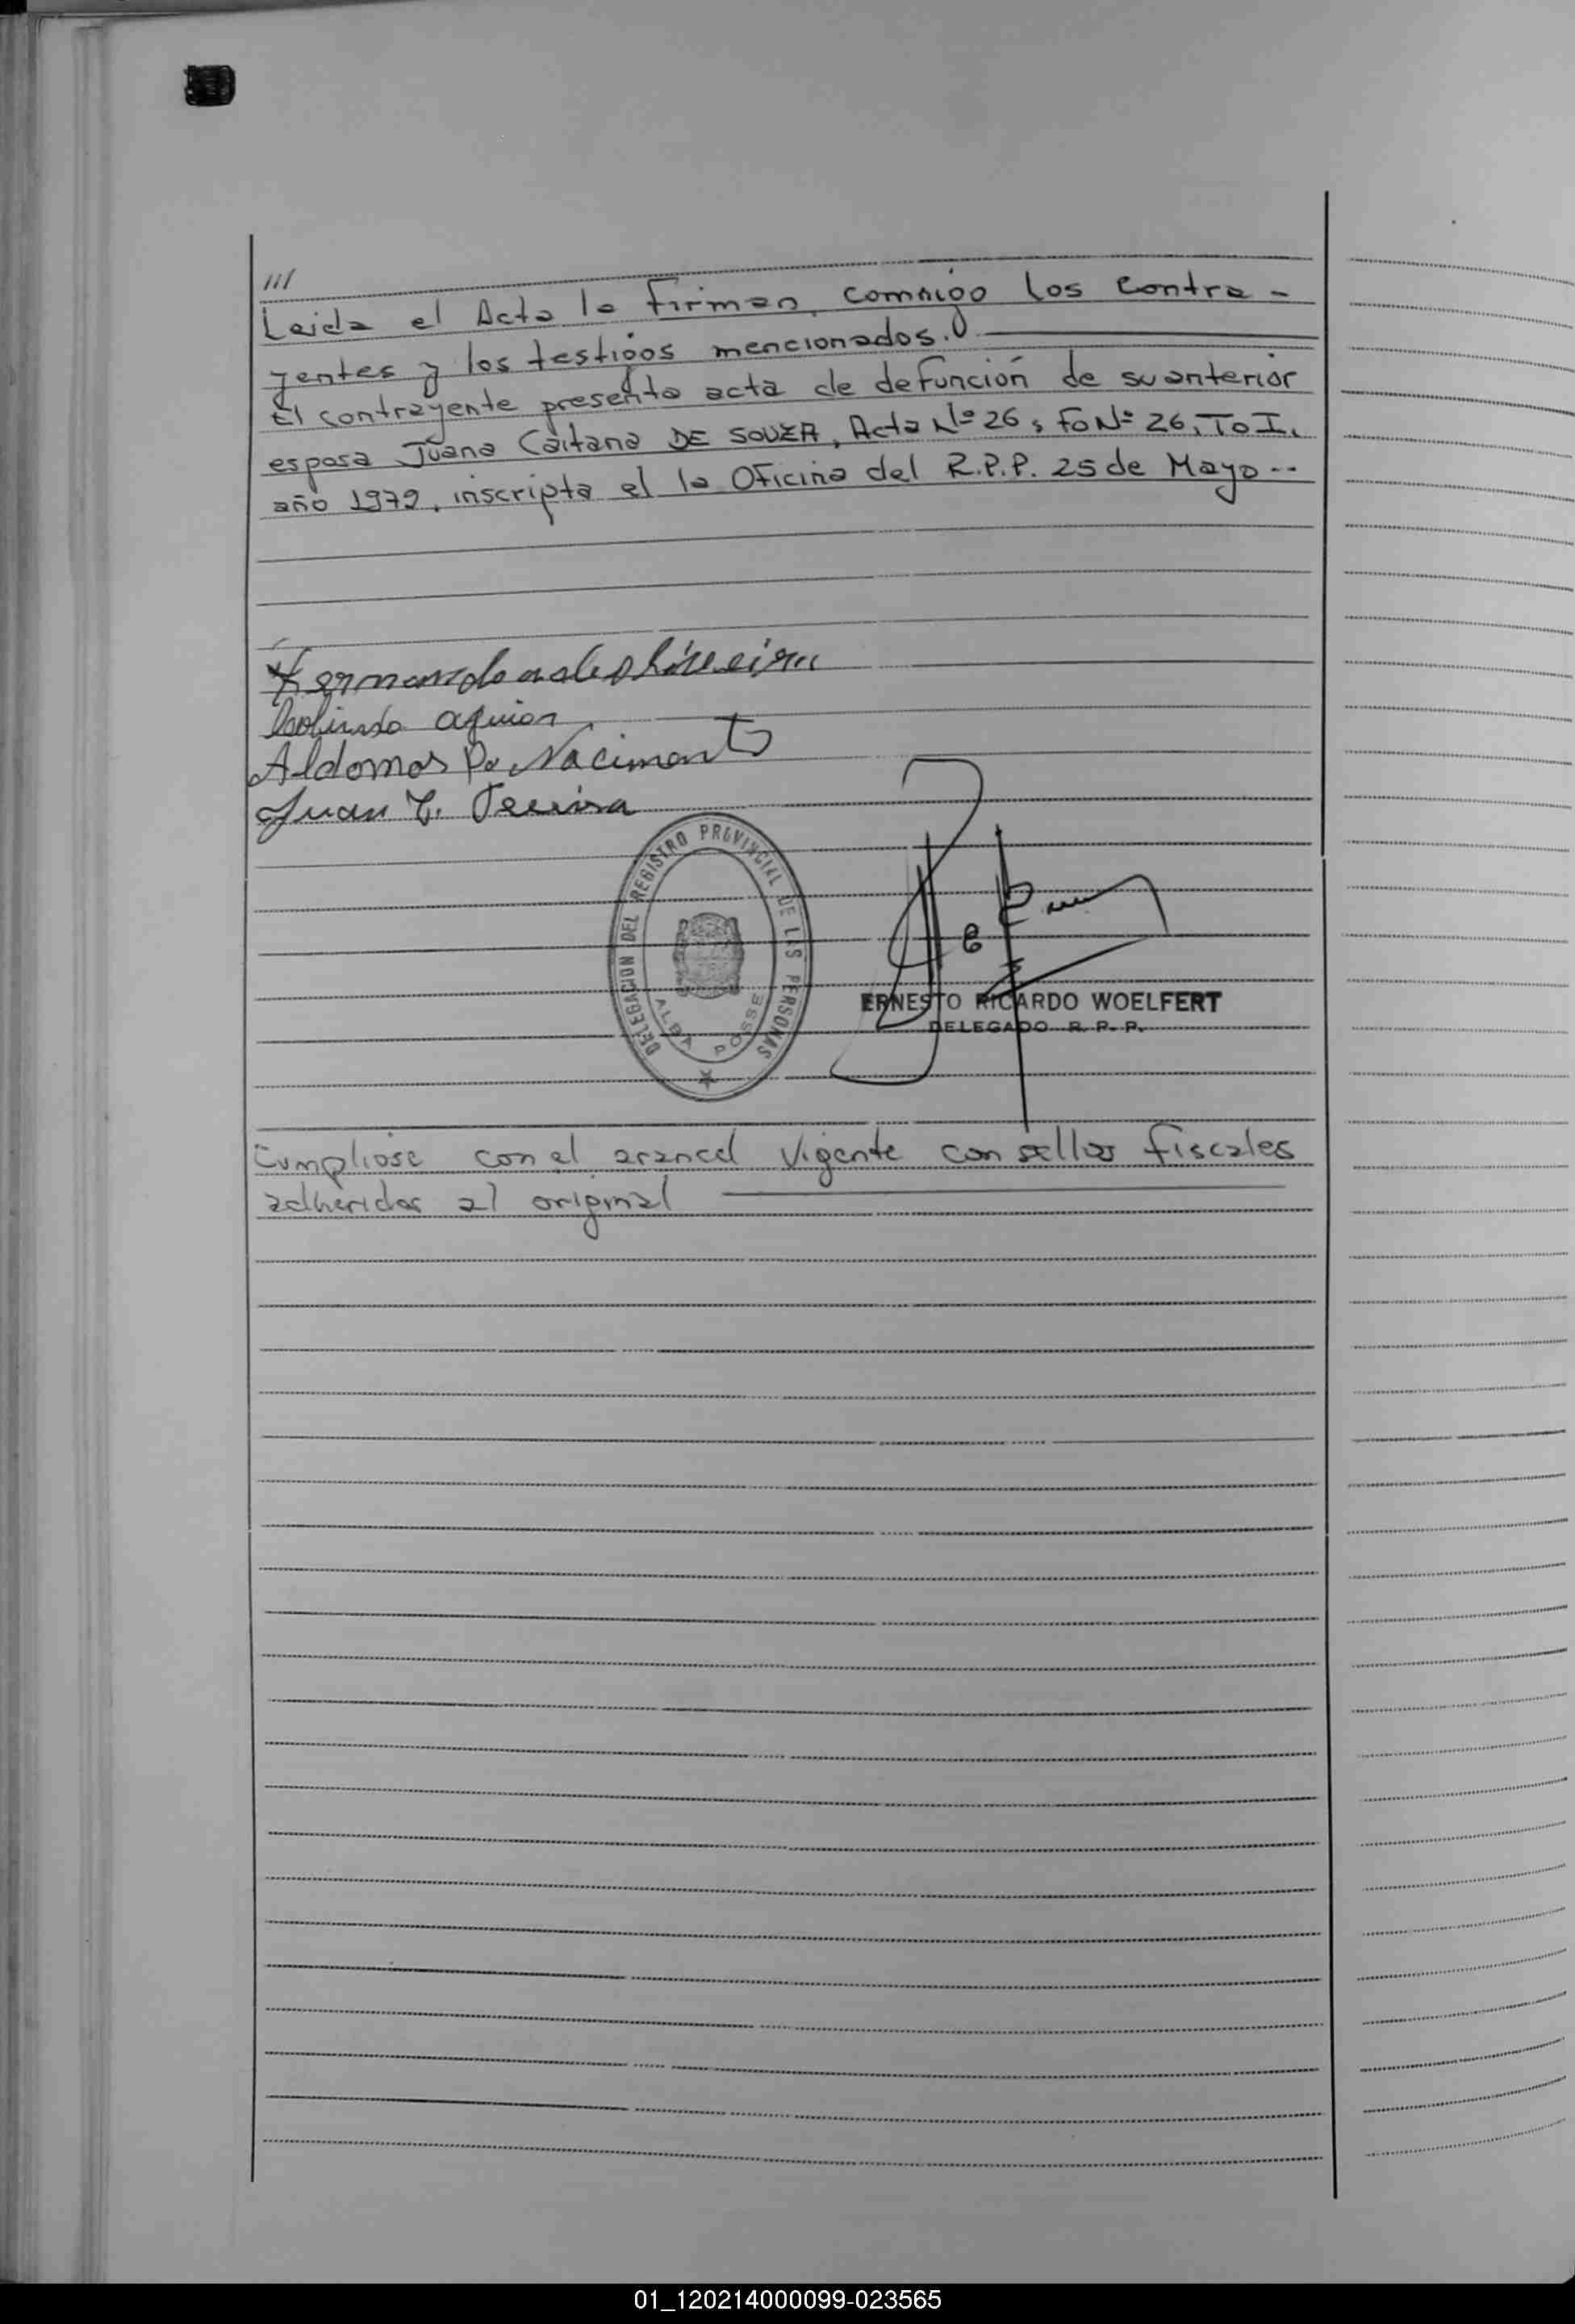 ///
Leida el Acta la Firman, comnigo los Contra-
yentes y los testigos mencionados.
El contrayente presento acta de defunción de su anterior
esposa Juana Caitana DE SOUZA, Acta Nº 26, Fo Nº 26, To I,
año 1972, inscripta el la Oficina del R.P.P. 25 de Mayo --
Aldomar Do Nacimento
Juan
DELEGACION DEL REGISTRO PROVINCIAL DE LAS PERSONAS
ALBA POSSE
ERNESTO RICARDO WOELFERT
DELEGADO R. P. P.
Cumpliose con el arancel vigente con sellos fiscales
adheridos al original
01_120214000099-023565